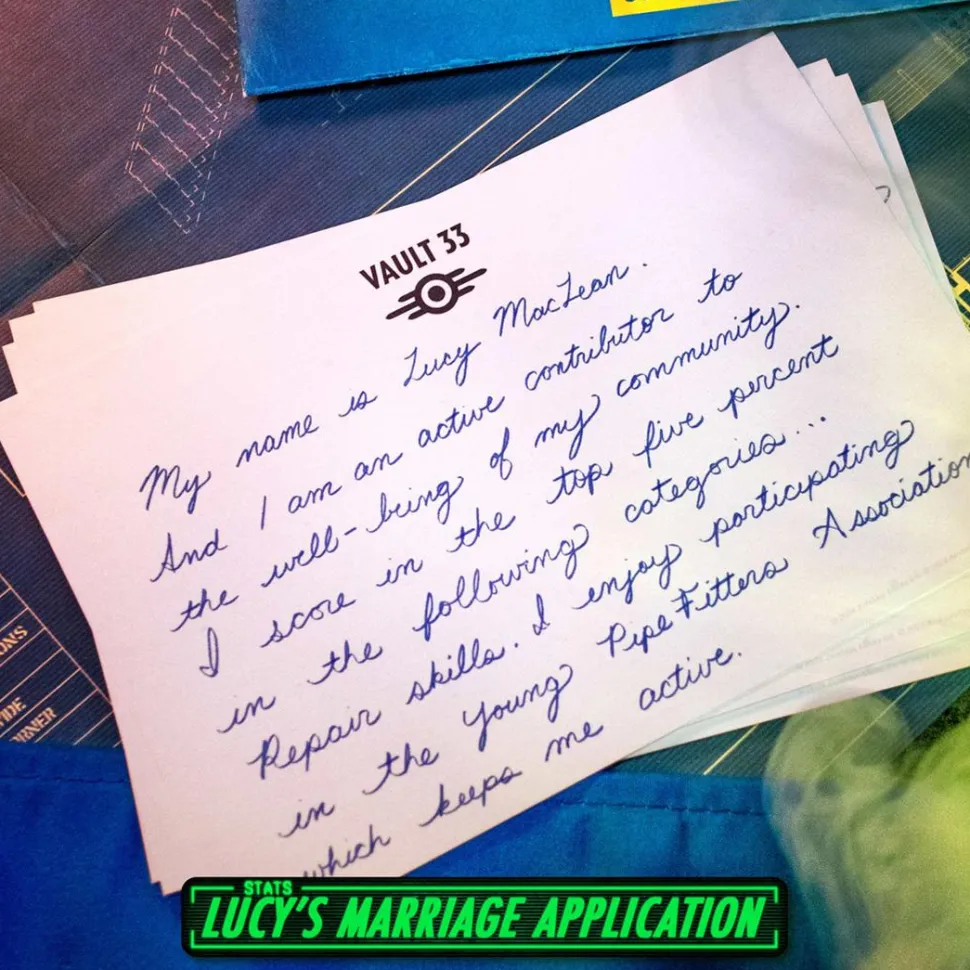 VAULT 33
My name is Lucy MacLean.
And I am an active contributor to
the well-being of my community.
I score in the top five percent
in the following categories...
Repair skills. I enjoy participating
in the Young PipeFitters Association
which keeps me active.
STATS
LUCY'S MARRIAGE APPLICATION